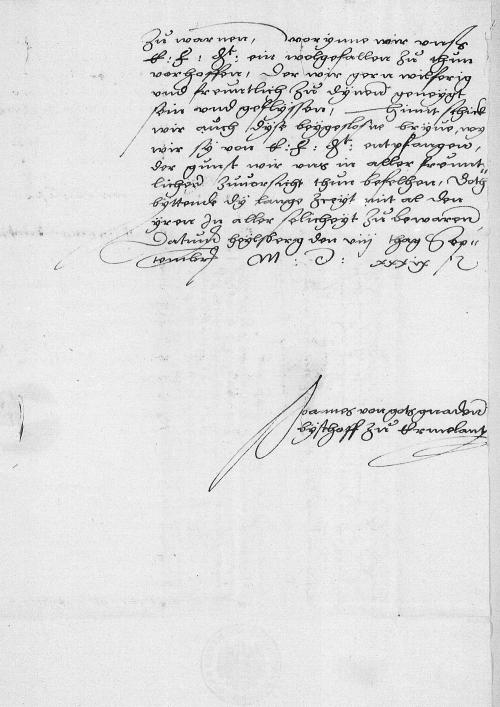 zu warnen, worynne wir vnss
E: F: Gt: ein wolgefallen zu thun
vorhoffen, der wir gern wilferig
vnd freuntlich zu dynen geneygt
sein vnd geflyssen, Hirmit schick
wir auch dyse beygeslosne bryue, wy
wir sy von E: F: Gt: entpfangen,
der gunst wir vns in aller freunt
lichen zuuorsicht thun befelhen, Goth
byttende dy lange zceyt mit al den
yren In aller selicheyt zu bewaren
Datum Heylsberg den viij thag Sep-
tembris M: D: xxxix
Joannes von gots gnaden
byschoff zu Ermelant